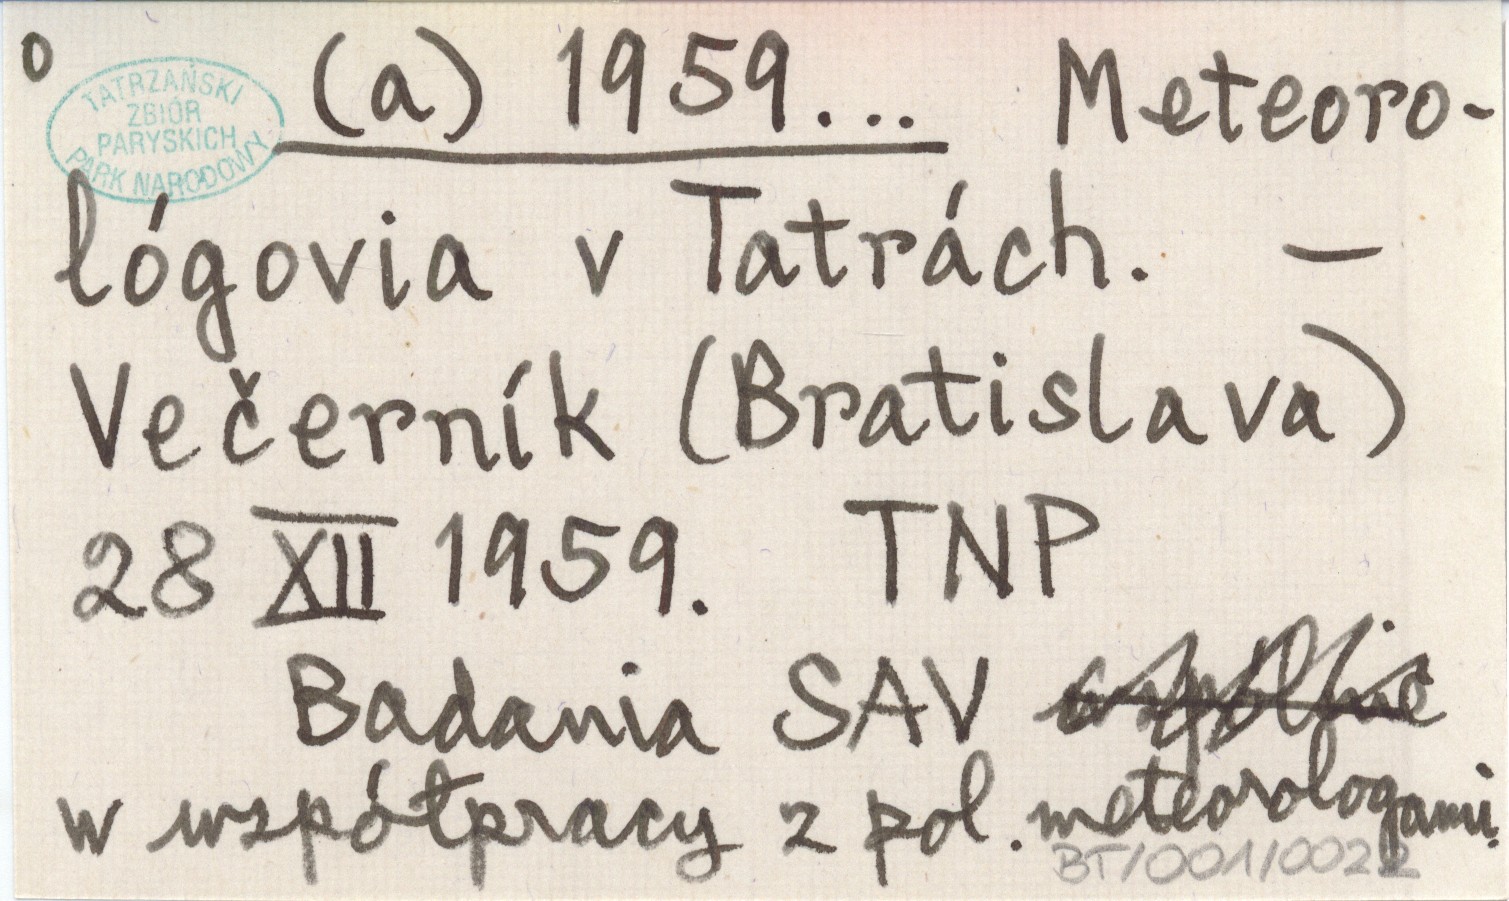 0
TATRZAŃSKI
ZBIÓR
PARYSKICH
PARK NARODOWY
(a) 1959... Meteoro-
lógovia v Tatrách. —
Večerník (Bratislava)
28 XII 1959. TNP
Badania SAV wspólnie
w współpracy z pol. meteorologami.
BT/001/0022